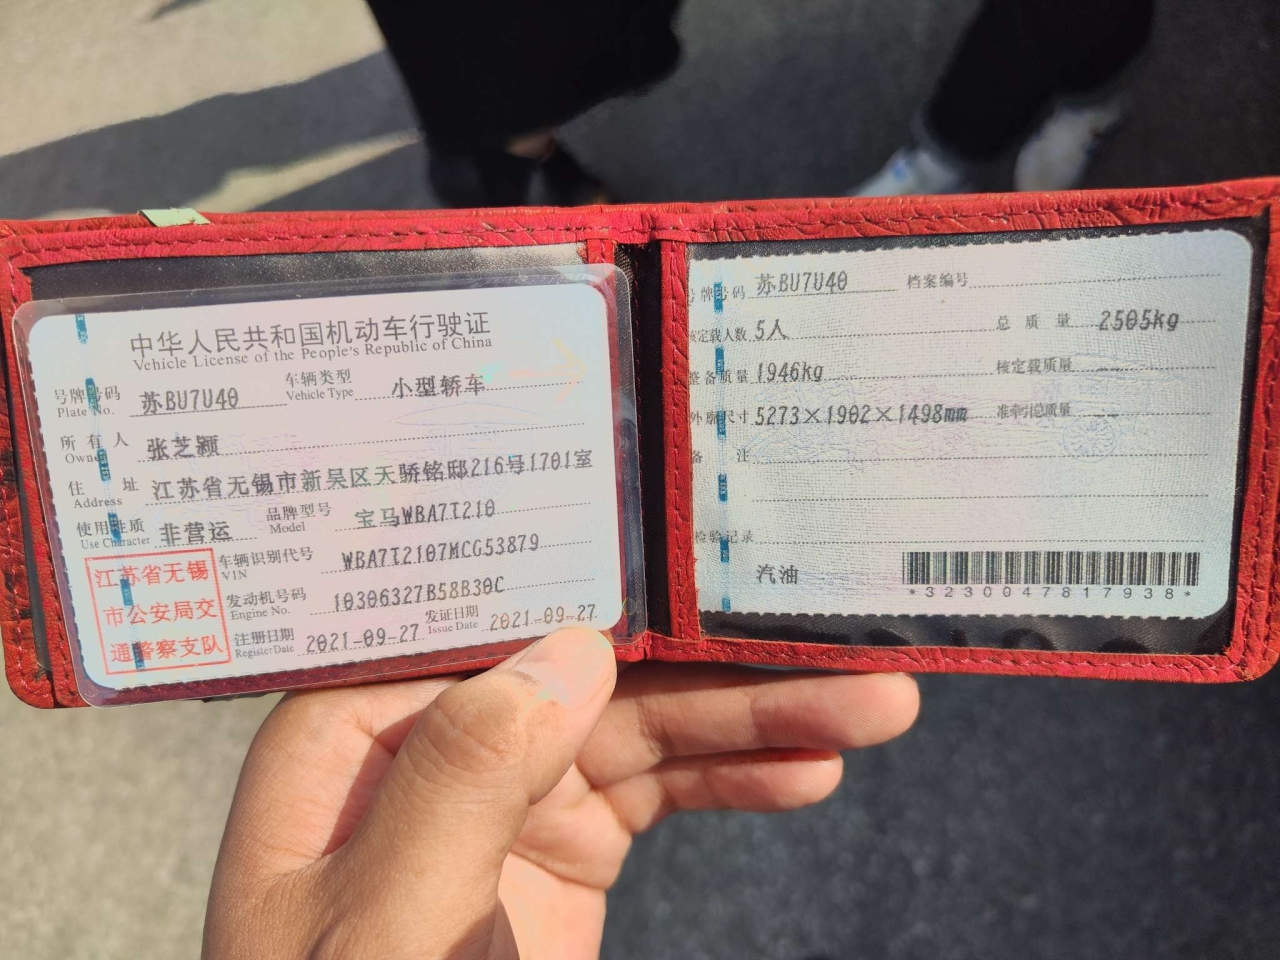 中华人民共和国机动车行驶证
Vehicle License of the People's Republic of China
号牌号码 苏BU7U40 车辆类型 小型轿车
Plate No. Vehicle Type
所有人 张芝颍
Owner
住址 江苏省无锡市新吴区天骄铭邸216号1701室
Address
使用性质 非营运 品牌型号 宝马WBA7T210
Use Character Model
车辆识别代号 WBA7T2107MCG53879
VIN
发动机号码 10306327B58B30C
Engine No.
注册日期 2021-09-27 发证日期 2021-09-27
Register Date Issue Date
江苏省无锡
市公安局交
通警察支队
号牌号码 苏BU7U40 档案编号
核定载人数 5人 总质量 2505kg
整备质量 1946kg 核定载质量 --
外廓尺寸 5273×1902×1498mm 准牵引总质量 --
备注
检验记录
汽油
*3230047817938*